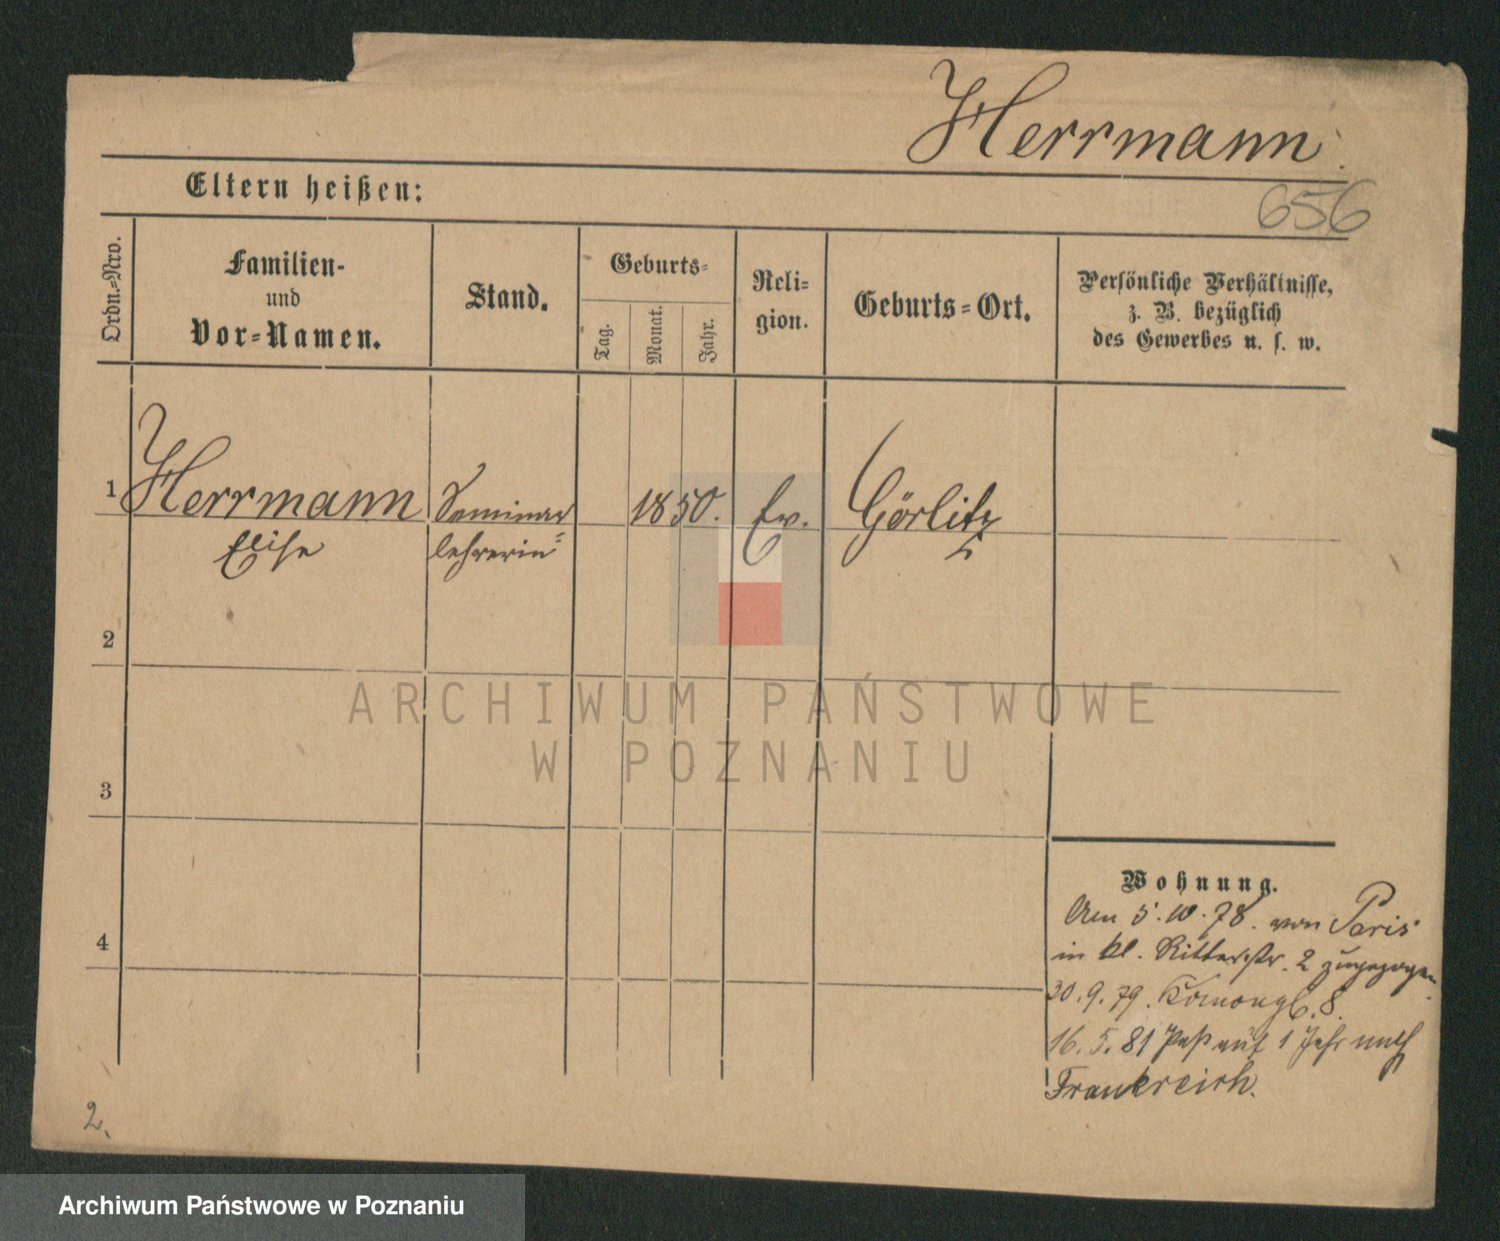 Herrmann
656
Eltern heißen:
Ordn.=Nro.
Familien-
und
Vor=Namen.
Stand.
Geburts=
Tag.
Monat.
Jahr.
Reli=
gion.
Geburts=Ort.
Persönliche Verhältnisse,
z. B. bezüglich
des Gewerbes u. s. w.
1
Herrmann
Elise
Seminar
lehrerin
1850.
Ev.
Görlitz
2
3
4
Wohnung.
Am 5.10.78. von Paris
in kl. Ritterstr. 2 zugezogen
30.9.79. 8.
16.5.81 Paß auf 1 Jahr nach
Frankreich.
2.
ARCHIWUM PAŃSTWOWE
W POZNANIU
Archiwum Państwowe w Poznaniu